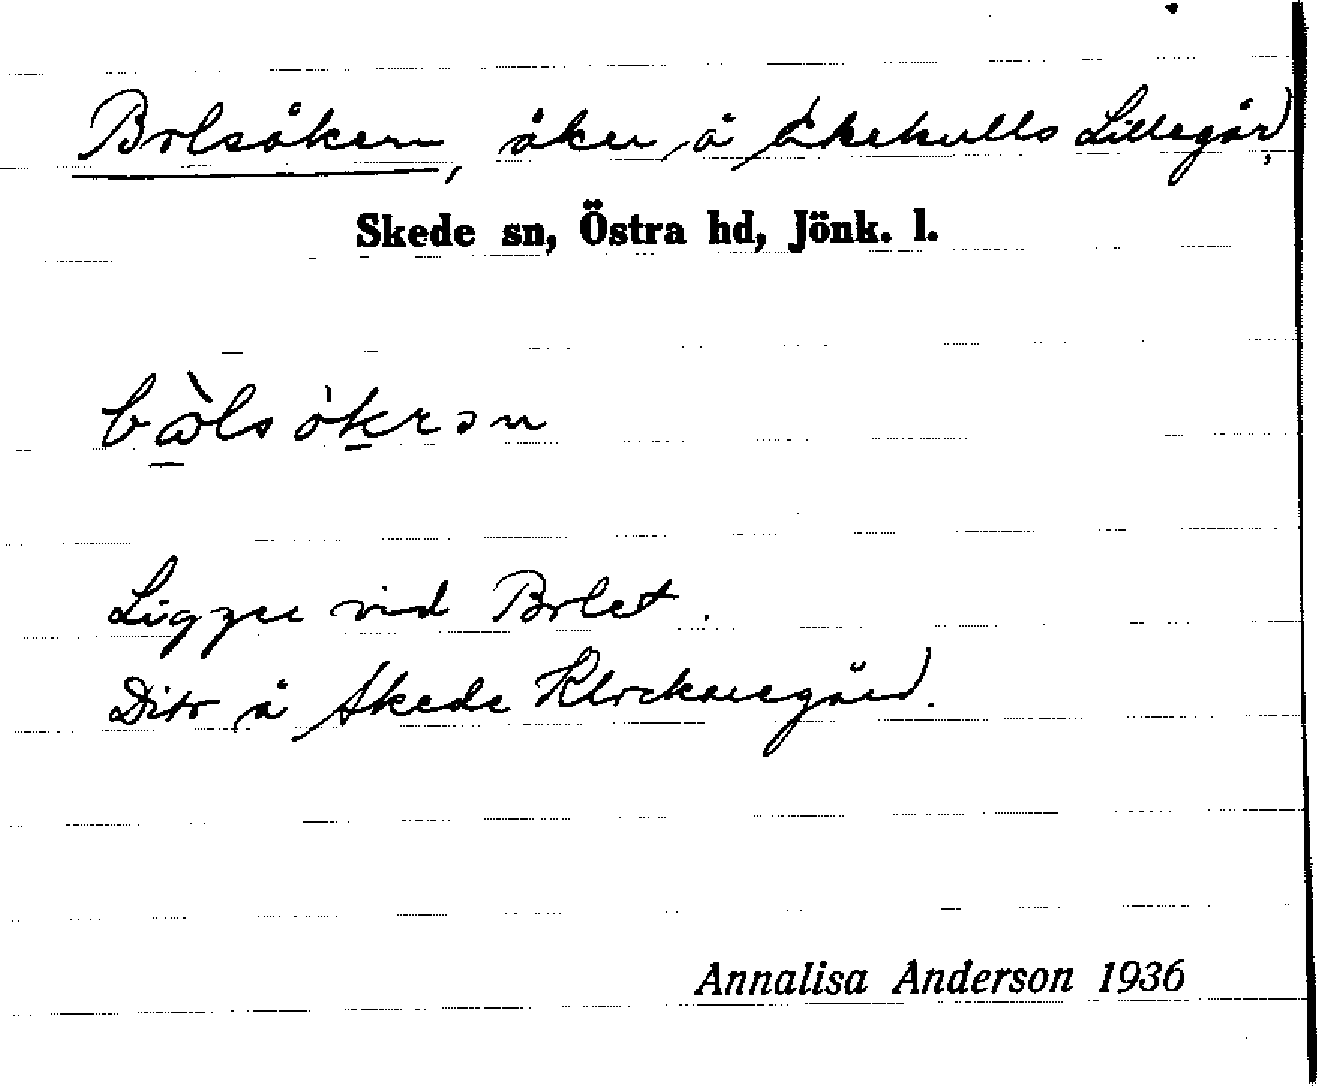 Bolsåkern, åker å Ekekulls Lillegård,
Skede sn, Östra hd, Jönk. l.
Ligger vid Bolet.
Dito å Skede Klockaregård.
Annalisa Anderson 1936